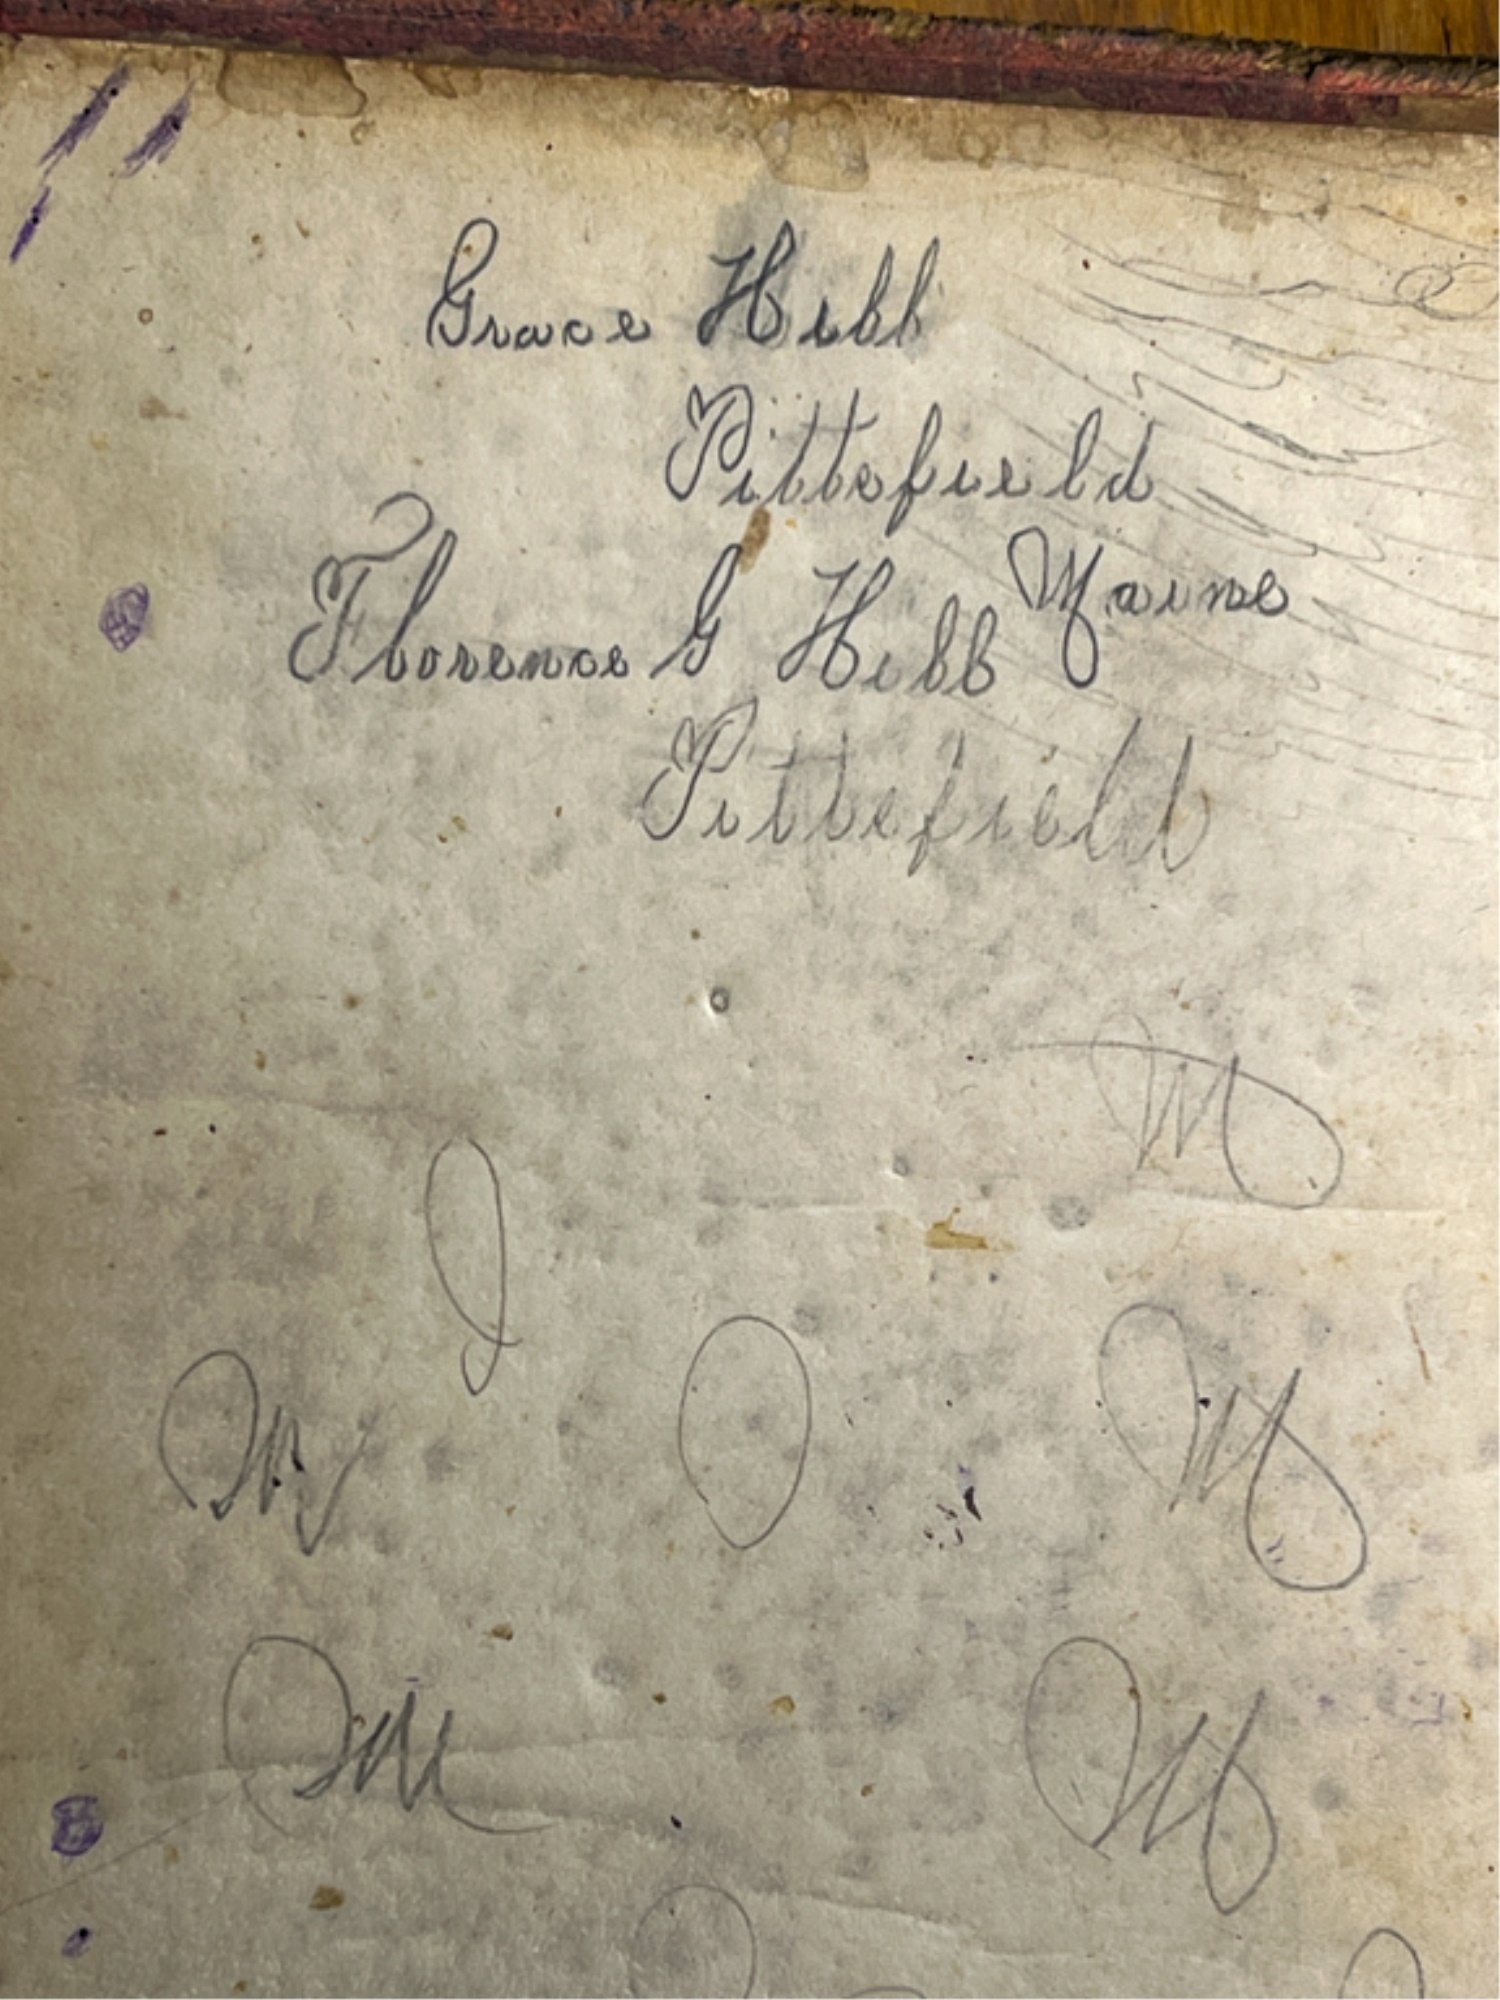 Grace Hibb
Pittsfield
Maine
Florence G Hibb
Pittsfield
M
M
M
M
M